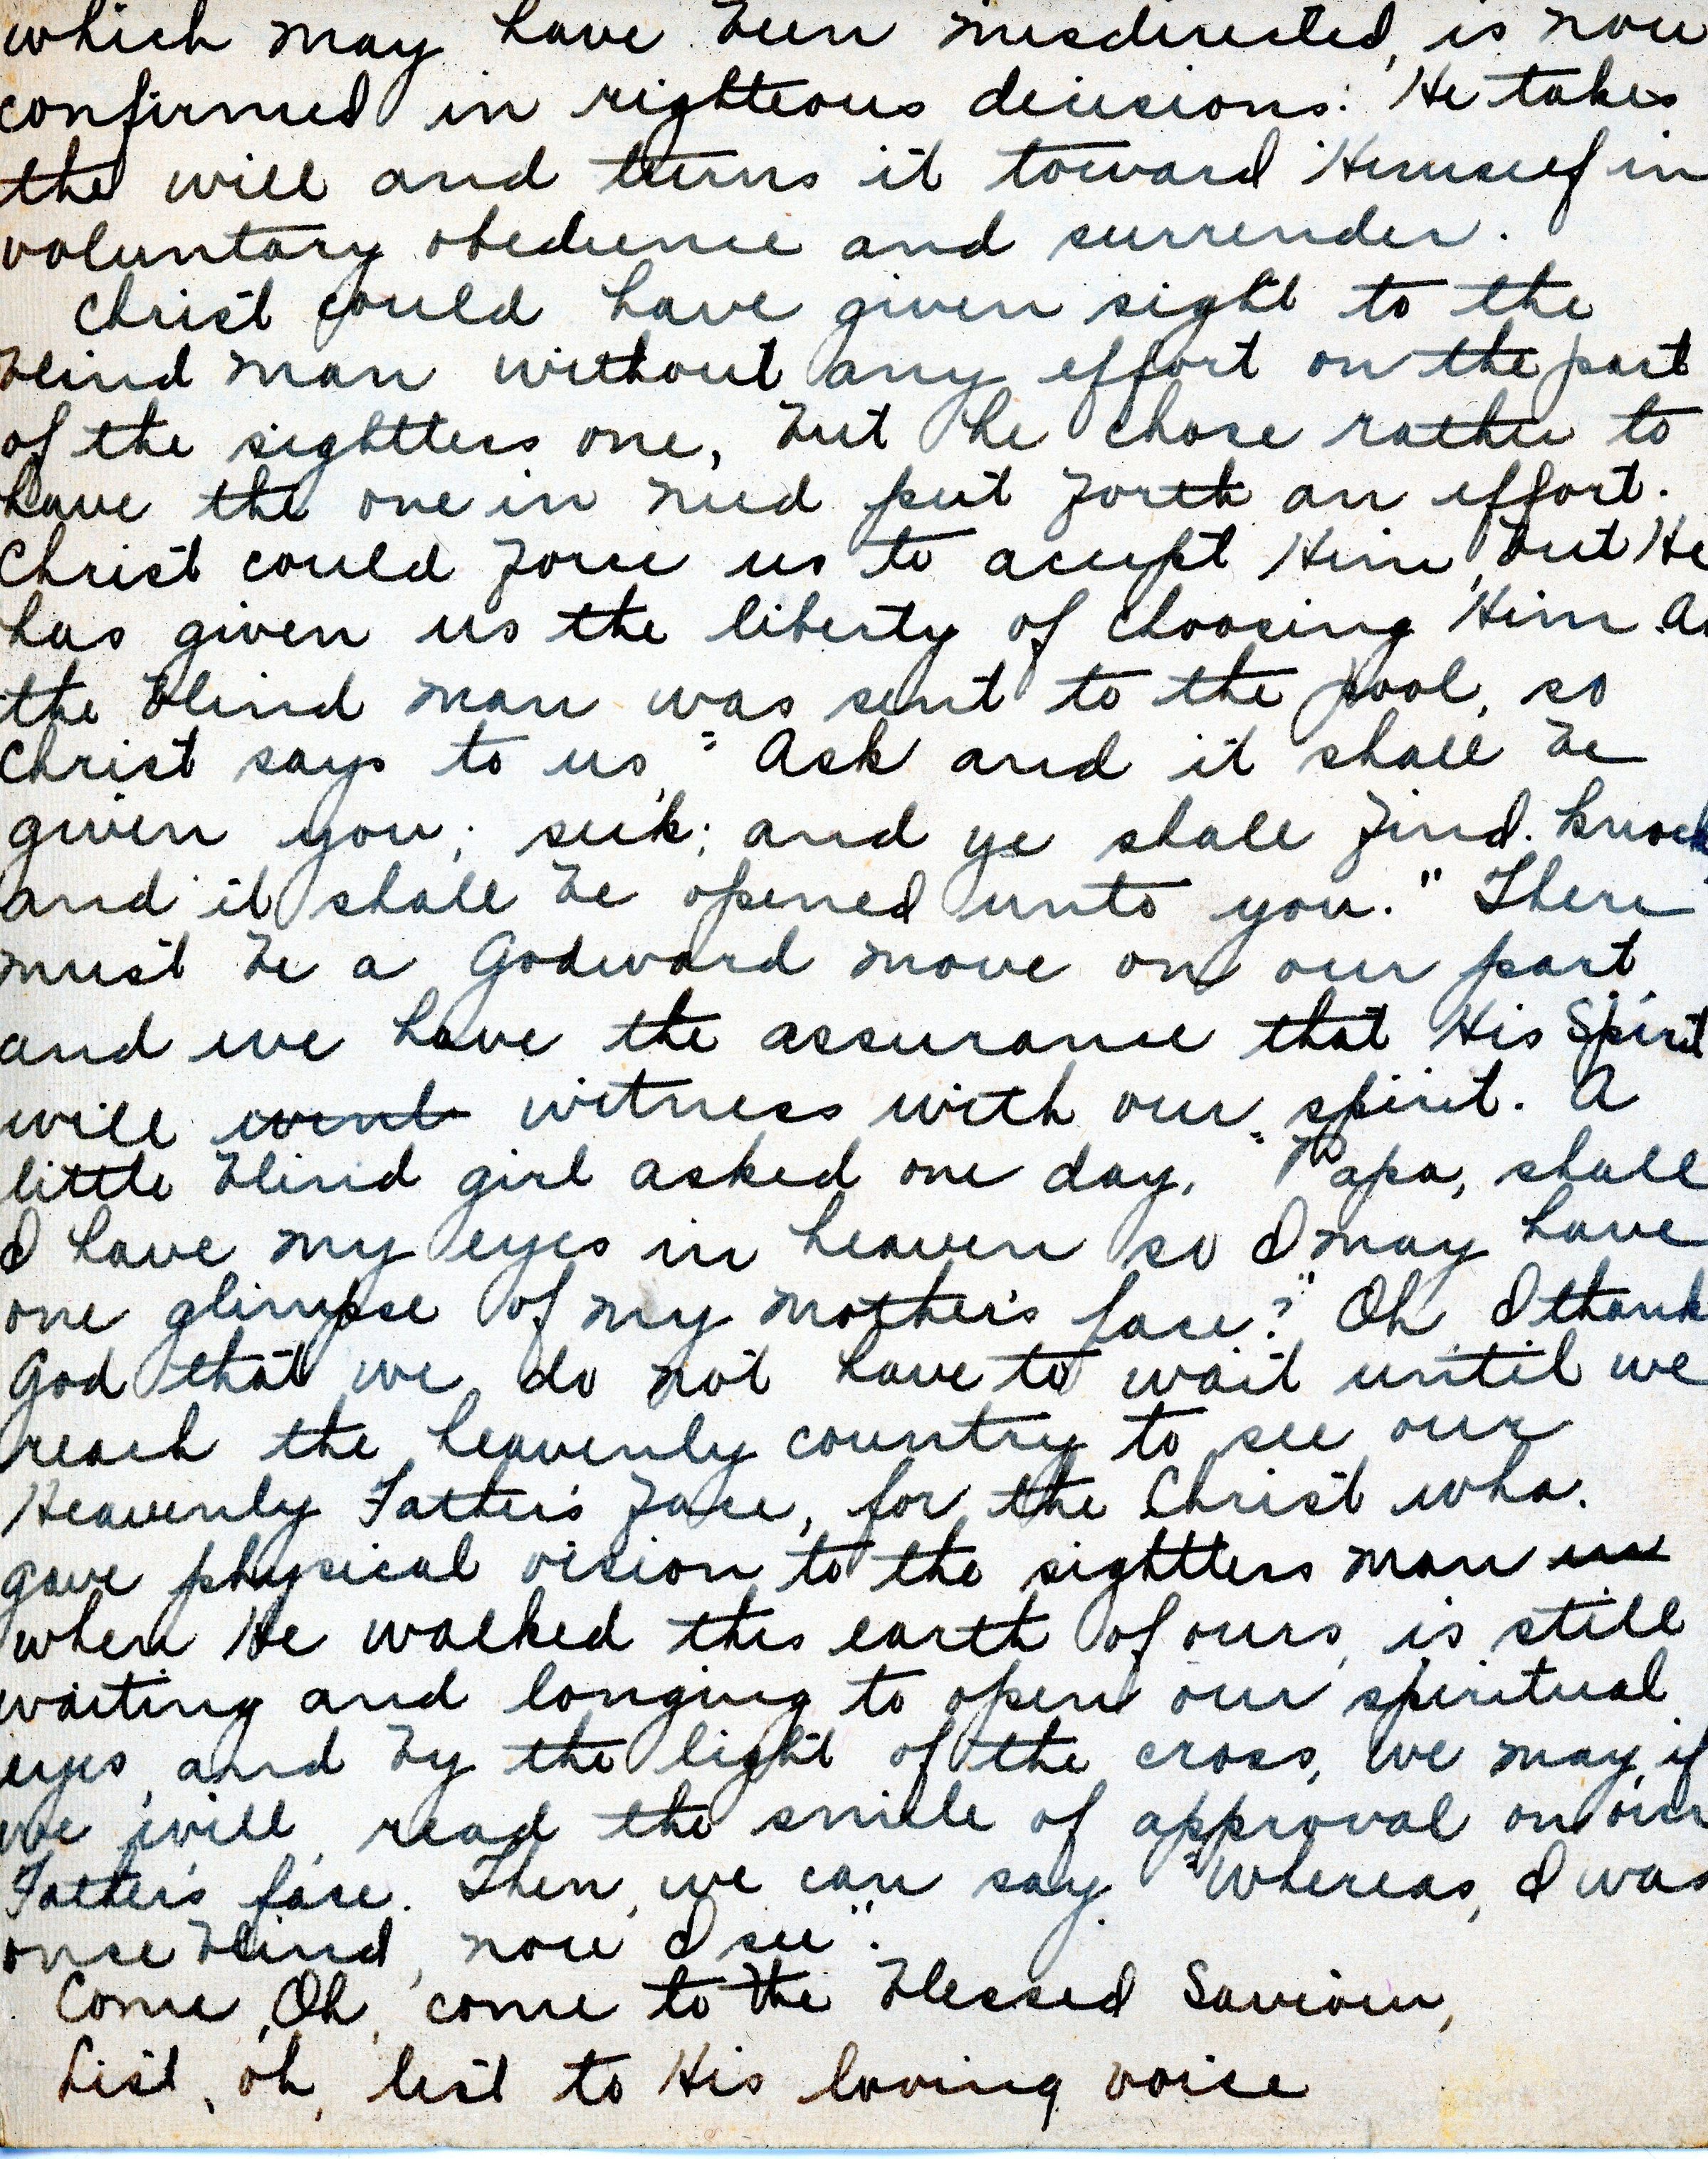 which may have been misdirected, is now
confirmed in righteous decisions. He takes
the will and turns it toward Himself in
voluntary obedience and surrender.
Christ could have given sight to the
blind man without any effort on the part
of the sightless one, but he chose rather to
have the one in need put forth an effort.
Christ could force us to accept Him, but He
has given us the liberty of choosing Him. As
the blind man was sent to the pool, so
Christ says to us, "Ask and it shall be
given you; seek; and ye shall find. knock,
and it shall be opened unto you." There
must be a Godward move on our part
and we have the assurance that His Spirit
will witness with our spirit. A
little blind girl asked one day, "Papa, shall
I have my eyes in heaven so I may have
one glimpse of my mother's face?" Oh I thank
God that we do not have to wait until we
reach the heavenly country to see our
Heavenly Father's face, for the Christ who
gave physical vision to the sightless man
when He walked this earth of ours, is still
waiting and longing to open our spiritual
eyes, and by the light of the cross, we may, if
we will, read the smile of approval on our
Father's face. Then, we can say, "Whereas, I was
once blind, now I see".
Come, Oh, come to the blessed Saviour,
List, oh, list to His loving voice